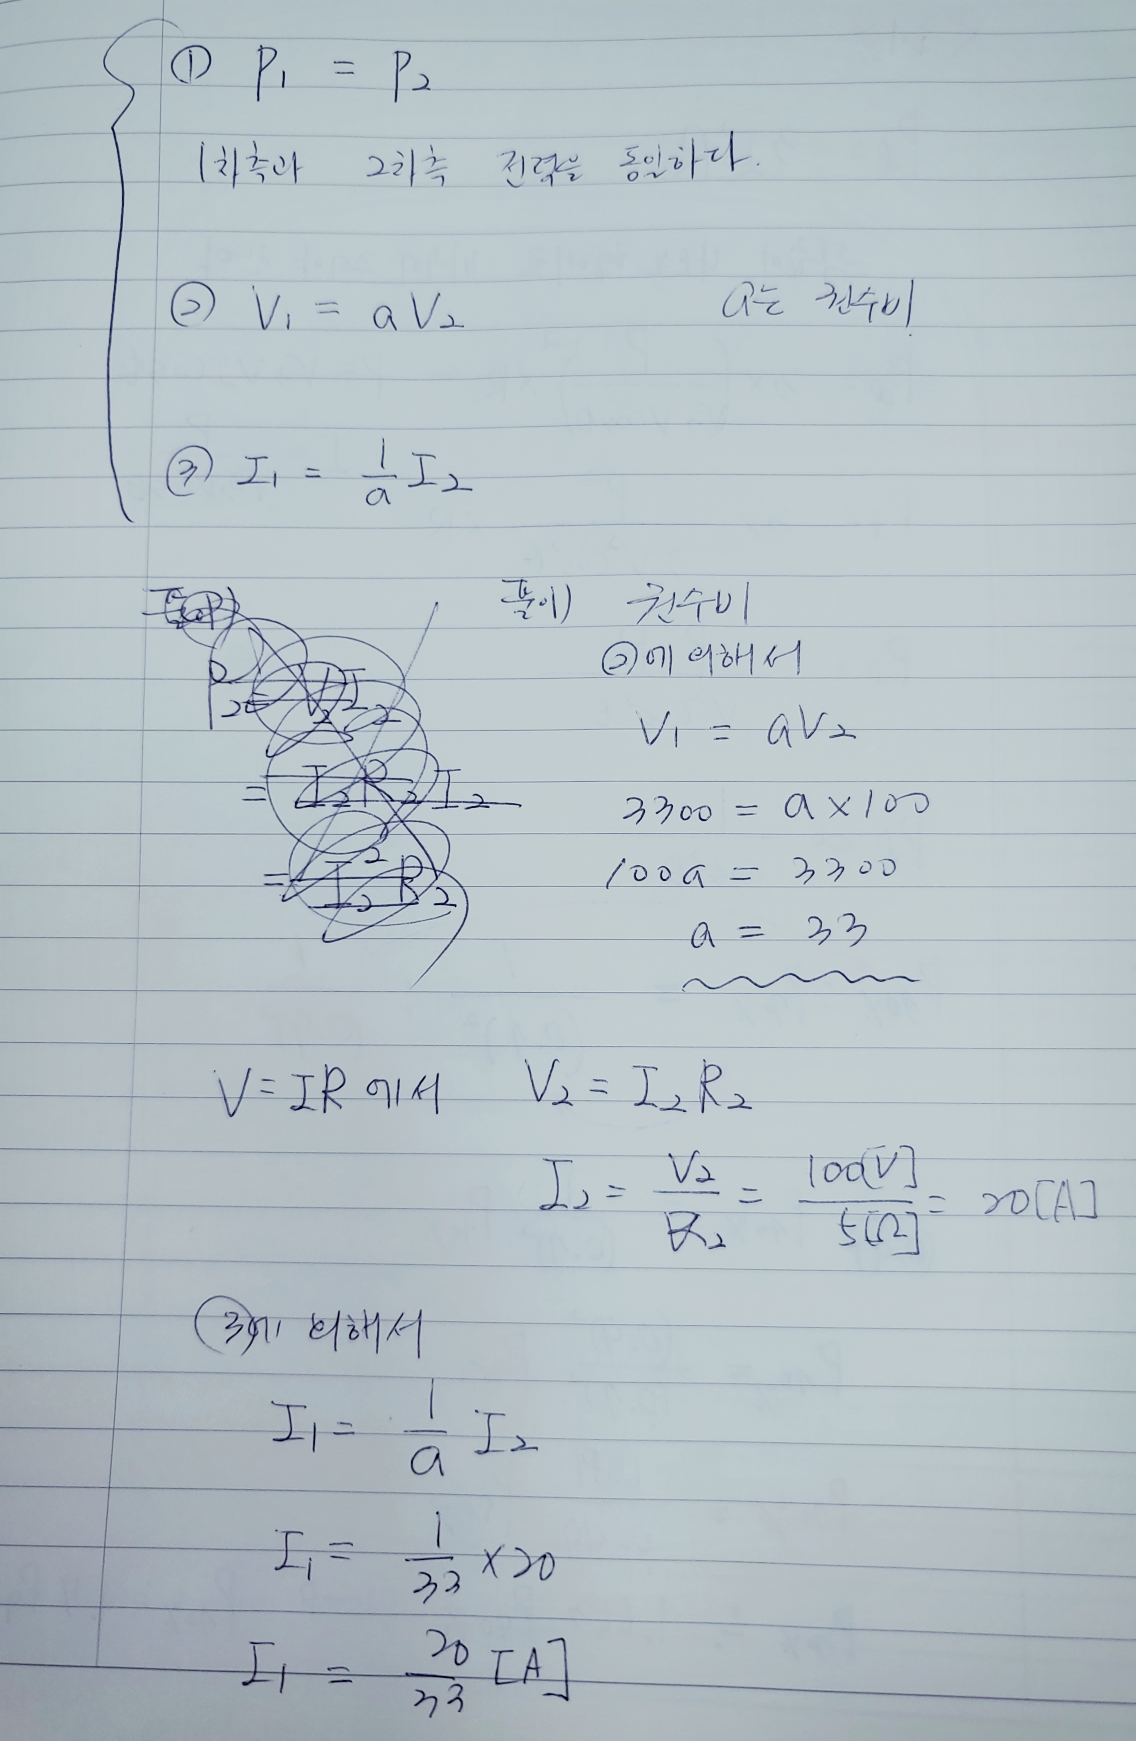 ① P₁ = P₂
1차측과 2차측 전력을 동일하다.
② V₁ = aV₂ a는 권수비
③ I₁ = 1/a I₂
풀이) 권수비
②에 의해서
V₁ = aV₂
3300 = a×100
100a = 3300
a = 33
P₂ = V₂I₂
= I₂R₂I₂
= I₂²R₂
V=IR에서 V₂ = I₂R₂
I₂ = V₂/R₂ = 100[V]/5[Ω] = 20[A]
③에 의해서
I₁ = 1/a I₂
I₁ = 1/33 × 20
I₁ = 20/33 [A]